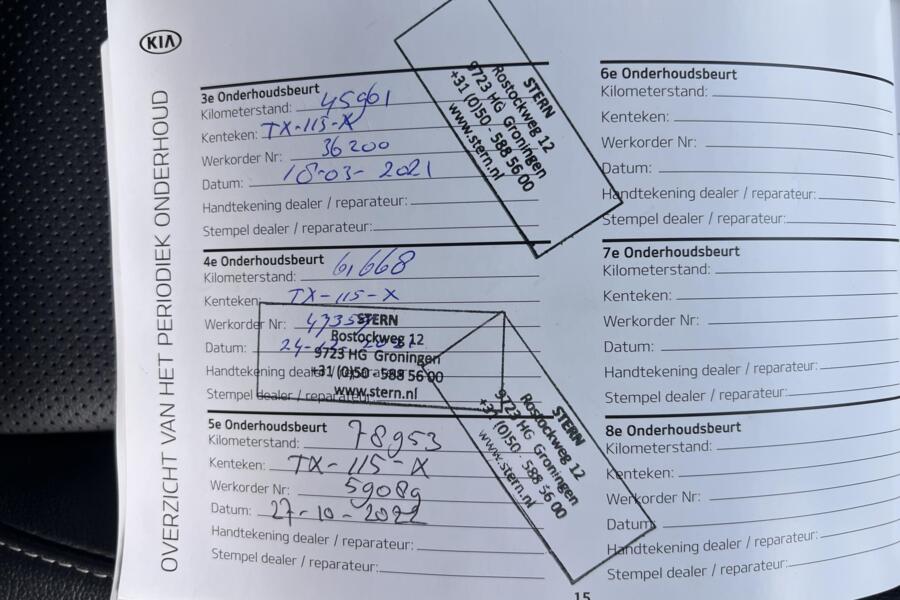 KIA
OVERZICHT VAN HET PERIODIEK ONDERHOUD
3e Onderhoudsbeurt
Kilometerstand: 45901
Kenteken: TX-115-X
Werkorder Nr: 36200
Datum: 18-03-2021
Handtekening dealer / reparateur:
Stempel dealer / reparateur:
STERN
Rostockweg 12
9723 HG Groningen
+31 (0)50 - 588 56 00
www.stern.nl
4e Onderhoudsbeurt
Kilometerstand: 61668
Kenteken: TX-115-X
Werkorder Nr:
Datum:
Handtekening dealer / reparateur:
Stempel dealer / reparateur:
STERN
Rostockweg 12
9723 HG Groningen
+31 (0)50 - 588 56 00
www.stern.nl
5e Onderhoudsbeurt
Kilometerstand: 78953
Kenteken: TX-115-X
Werkorder Nr: 59089
Datum: 27-10-2022
Handtekening dealer / reparateur:
Stempel dealer / reparateur:
STERN
Rostockweg 12
9723 HG Groningen
+31 (0)50 - 588 56 00
www.stern.nl
6e Onderhoudsbeurt
Kilometerstand:
Kenteken:
Werkorder Nr:
Datum:
Handtekening dealer / reparateur:
Stempel dealer / reparateur:
7e Onderhoudsbeurt
Kilometerstand:
Kenteken:
Werkorder Nr:
Datum:
Handtekening dealer / reparateur:
Stempel dealer / reparateur:
8e Onderhoudsbeurt
Kilometerstand:
Kenteken:
Werkorder Nr:
Datum:
Handtekening dealer / reparateur:
Stempel dealer / reparateur:
15